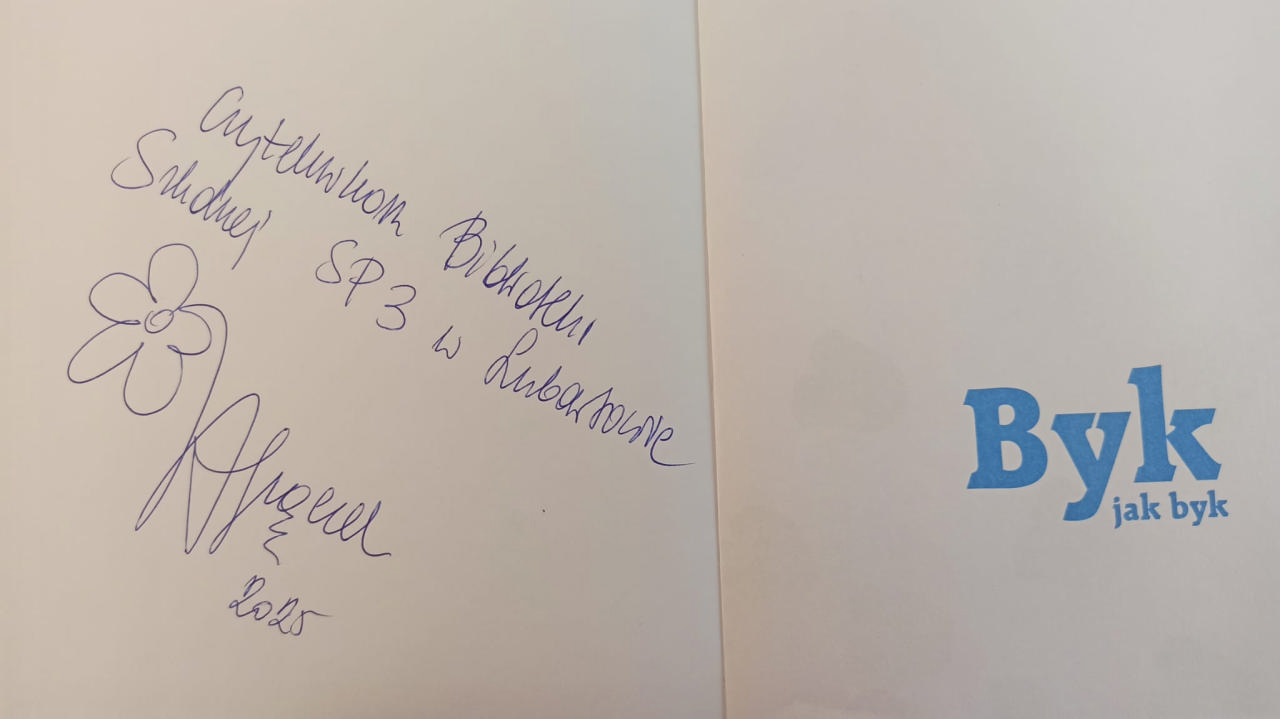 Czytelnikom Biblioteki
Szkolnej SP3 w Lubartowie
2025
Byk
jak byk